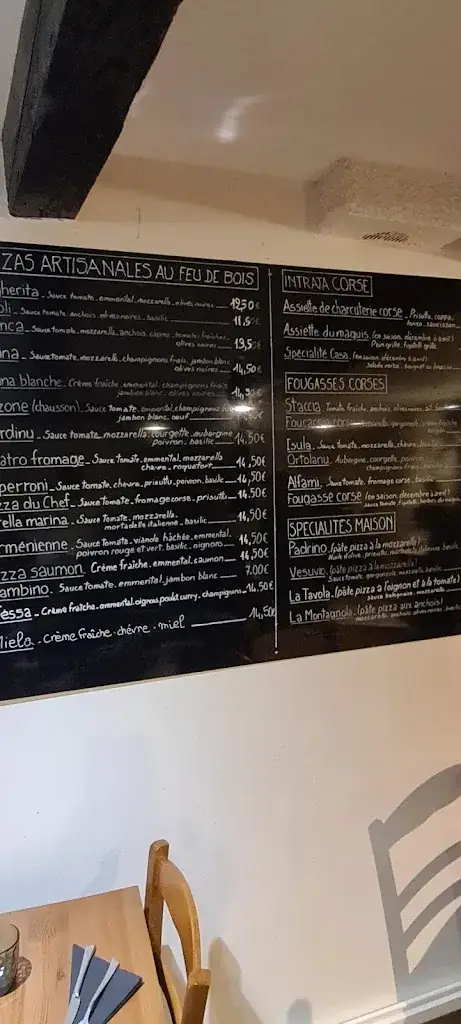 ZAS ARTISANALES AU FEU DE BOIS
herita - Sauce tomate, emmental, mozzarella, olives noires 12,50€
oli - Sauce tomate, anchois, olives noires, basilic 11,50€
nca - Sauce tomate, mozzarella, anchois, câpres, tomates fraîches
olives noires 13,50€
ana - Sauce tomate, mozzarella, champignons frais, jambon blanc
olives noires 14,50€
na blanche - Crème fraîche, emmental, champignons frais
jambon blanc, olives noires 14,50€
zone (chausson) - Sauce tomate, emmental, champignons
jambon blanc, oeuf
rdinu - Sauce tomate, mozzarella, courgette, aubergine
poivron, basilic 14,50€
atro fromage - Sauce tomate, emmental, mozzarella
chèvre, roquefort 14,50€
perroni - Sauce tomate, chèvre, prisuttu, poivron, basilic 14,50€
zza du Chef - Sauce tomate, fromage corse, prisuttu 14,50€
rella marina - Sauce tomate, mozzarella,
mortadelle italienne, basilic 14,50€
rménienne - Sauce tomate, viande hâchée, emmental,
poivron rouge et vert, basilic, oignons 14,50€
zza saumon - Crème fraîche, emmental, saumon 14,50€
ambino - Sauce tomate, emmental, jambon blanc 7,00€
essa - Crème fraîche, emmental, oignons, poulet curry, champignons 14,50€
Miela - crème fraîche - chèvre - miel 14,50€
INTRATA CORSE
Assiette de charcuterie corse - Prisuttu, coppa,
lonzo, saucisson
Assiette du maquis (en saison, décembre à avril)
Pain grillé, figatelli grillé
Spécialité Casa (en saison décembre à avril)
Salade verte, beignet au brocciu
FOUGASSES CORSES
Staccia - Tomate fraîche, anchois, olives noires, ail,
Fougasse corse - mozzarella, gorgonzola, crème fraîche
Isula - Sauce tomate, mozzarella, chèvre, basilic
Ortolanu - Aubergine, courgette, poivron,
champignons frais
Alfami - Sauce tomate, fromage corse, basilic
Fougasse corse (en saison, décembre à avril)
Sauce tomate, figatelli, herbes du maquis
SPECIALITES MAISON
Padrino - (pâte pizza à la mozzarella)
Huile d'olive, prisuttu, mortadelle italienne, basilic
Vesuvio - (pâte pizza à la mozzarella)
Sauce tomate, gorgonzola, mozzarella, basilic
La Tavola - (pâte pizza à l'oignon et à la tomate)
Sauce bolognaise, mozzarella
La Montagnola - (pâte pizza aux anchois)
mozzarella, anchois, olives noires, basilic